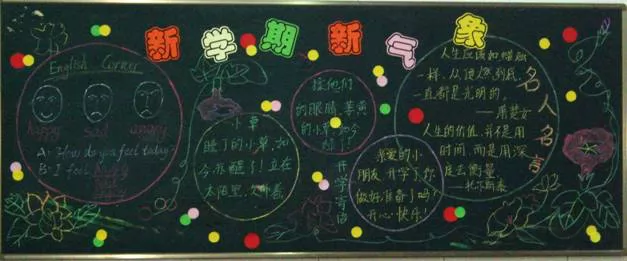 新学期新气象
English Corner
happy sad angry
A: How do you feel today?
B: I feel
小草
睡了的小草,如
今苏醒了!立在
太阳里,
揉他们
的眼睛,萎黄
的小草,如今
绿了!
开学寄语
亲爱的小
朋友,开学了,你
做好准备了吗?
开心快乐!
名人名言
人生应该如蜡烛
一样,从顶燃到底,
一直都是光明的。
——萧楚女
人生的价值,并不是用
时间,而是用深
度去衡量。
——托尔斯泰